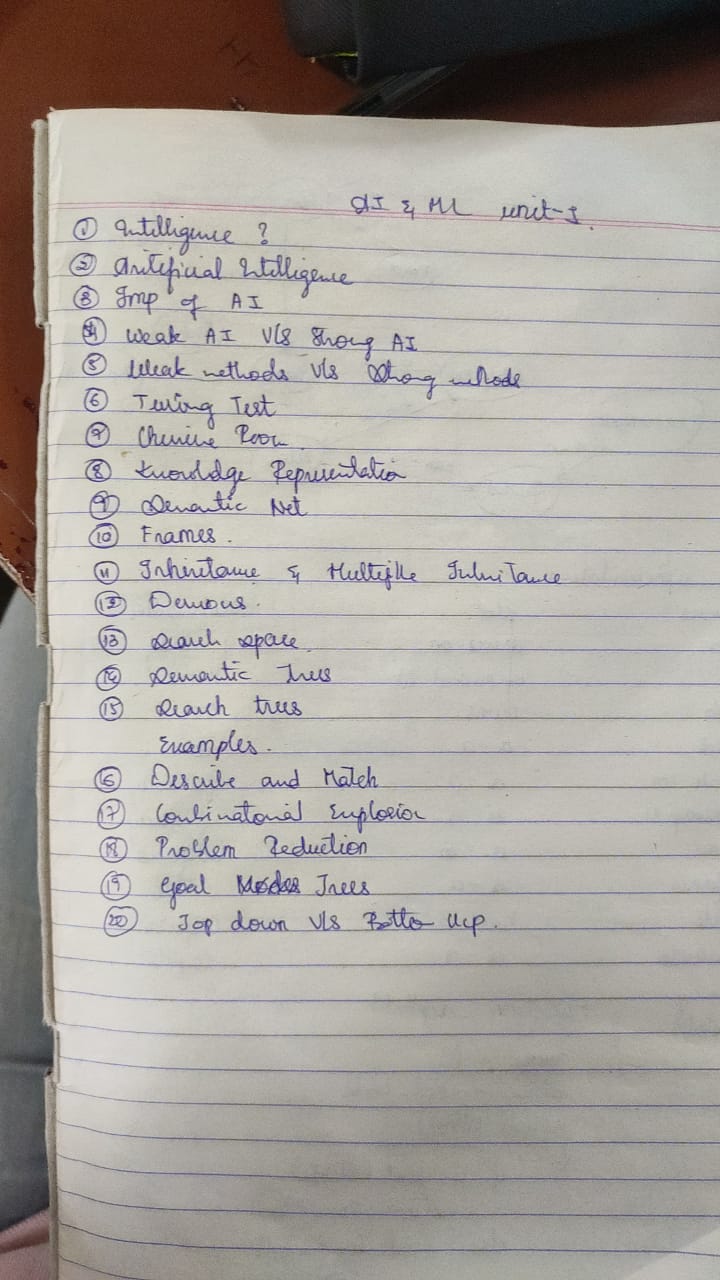 AI & ML unit-I.
① Intelligence ?
② Artificial Intelligence
③ Imp of AI
④ Weak AI V/s Strong AI
⑤ Weak methods V/s Strong methods
⑥ Turing Test
⑦ Chinese Room
⑧ Knowledge Representation
⑨ Semantic Net
⑩ Frames.
⑪ Inheritance & Multiple Inheritance
⑫ Demons.
⑬ Search space
⑭ Semantic Trees
⑮ Search trees
Examples.
⑯ Describe and Match
⑰ Combinatorial Explosion
⑱ Problem Reduction
⑲ Goal Trees
⑳ Top down V/s Botto Up.